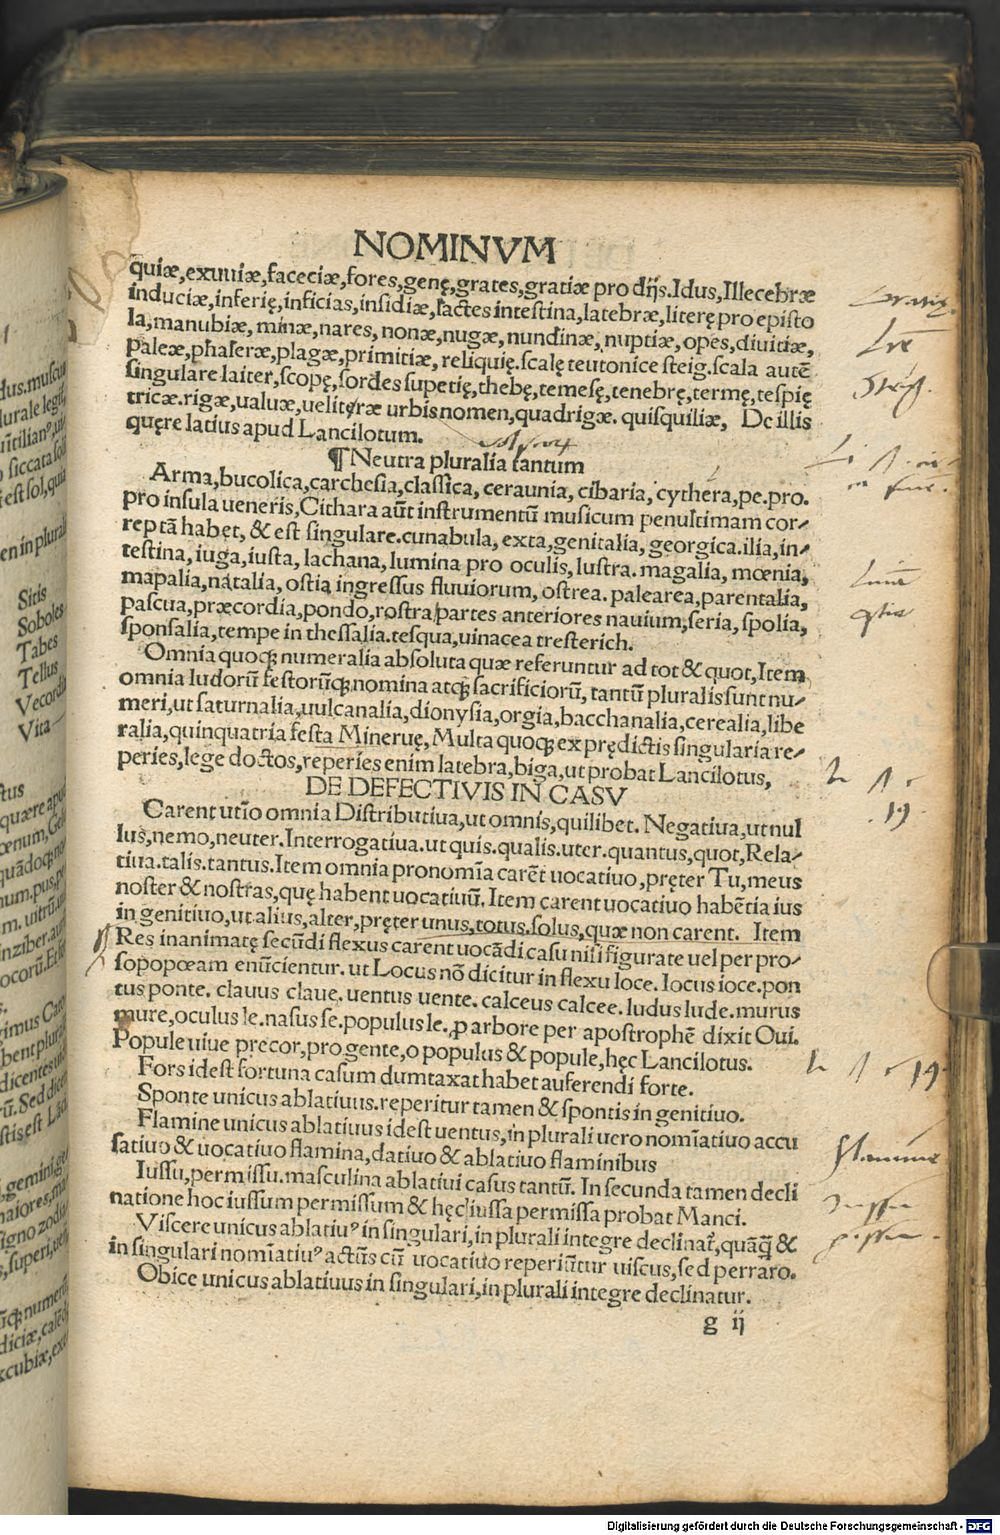 NOMINVM
quiæ, eximiæ, faceciæ, fores, genę, grates, gratiæ pro dijs. Idus, Illecebræ
induciæ, inferię, inficias, insidiæ, lactes intestina, latebræ, literę pro episto
la, manubiæ, minæ, nares, nonæ, nugæ, nundinæ, nuptiæ, opes, diuitiæ,
paleæ, phaleræ, plagæ, primitiæ, reliquię. scalę teutonice steig. scala autē
singulare laiter, scopę, sordes supetię, thebę, temesę, tenebrę, termę, tespię
tricæ. rigæ, ualuæ, ueliteræ urbis nomen, quadrigæ. quisquiliæ, De illis
quęre latius apud Lancilotum.
¶ Neutra pluralia tantum
Arma, bucolica, carchesia, classica, ceraunia, cibaria, cythera, pe. pro.
pro insula ueneris, Cithara aūt instrumentū musicum penultimam cor-
reptā habet, & est singulare. cunabula, exta, genitalia, georgica. ilia, in-
testina, iuga, iusta, lachana, lumina pro oculis, lustra. magalia, mœnia,
mapalia, natalia, ostia ingressus fluuiorum, ostrea. palearea, parentalia,
pascua, præcordia, pondo, rostra partes anteriores nauium, seria, spolia,
sponsalia, tempe in thessalia. tesqua, uinacea tresterich.
Omnia quoqꝫ numeralia absoluta quæ referuntur ad tot & quot, Item
omnia ludorū festorūqꝫ nomina atqꝫ sacrificiorū, tantū pluralis sunt nu-
meri, ut saturnalia, uulcanalia, dionysia, orgia, bacchanalia, cerealia, libe
ralia, quinquatria festa Mineruę, Multa quoqꝫ ex prędictis singularia re-
peries, lege doctos, reperies enim latebra, biga, ut probat Lancilotus,
DE DEFECTIVIS IN CASV
Carent utīo omnia Distributiua, ut omnis, quilibet. Negatiua, ut nul
lus, nemo, neuter. Interrogatiua. ut quis. qualis. uter. quantus, quot, Rela-
tiua. talis. tantus. Item omnia pronomīa carēt uocatiuo, pręter Tu, meus
noster & nostras, quę habent uocatiuū. Item carent uocatiuo habētia ius
in genitiuo, ut alius, alter, pręter unus, totus. solus, quæ non carent. Item
Res inanimatę secūdi flexus carent uocādi casu nisi figurate uel per pro-
sopopœam enūcientur. ut Locus nō dicitur in flexu loce. Iocus ioce. pon
tus ponte. clauus claue. uentus uente. calceus calcee. ludus lude. murus
mure, oculus le. nasus se. populus le. ꝓ arbore per apostrophē dixit Oui.
Popule uiue precor, pro gente, o populus & popule, hęc Lancilotus.
Fors id est fortuna casum dumtaxat habet auferendi forte.
Sponte unicus ablatiuus. reperitur tamen & spontis in genitiuo.
Flamine unicus ablatiuus id est uentus, in plurali uero nomīatiuo accu
satiuo & uocatiuo flamina, datiuo & ablatiuo flaminibus
Iussu, permissu. masculina ablatiui casus tantū. In secunda tamen decli
natione hoc iussum permissum & hęc iussa permissa probat Manci.
Viscere unicus ablatiuꝰ in singulari, in plurali integre declinat᷑, quāq̄ &
in singulari nomīatiuꝰ actūs cū uocatiuo reperiūtur uiscus, sed perraro.
Obice unicus ablatiuus in singulari, in plurali integre declinatur.
g ij
Sitis
Soboles
Tabes
Tellus
Vita
Flamine
19
19
Digitalisierung gefördert durch die Deutsche Forschungsgemeinschaft - DFG